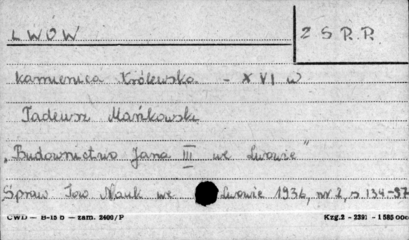 LWÓW
Z S.R.R.
Kamienica Królewska - XVI w
Tadeusz Mańkowski
„Budownictwo Jana III we Lwowie"
Spraw Tow Nauk we Lwowie 1936, nr 2, s. 134-37
CWD — B-15 b — zam. 2400/P
Kzg.2 - 2391 - 1 585 000